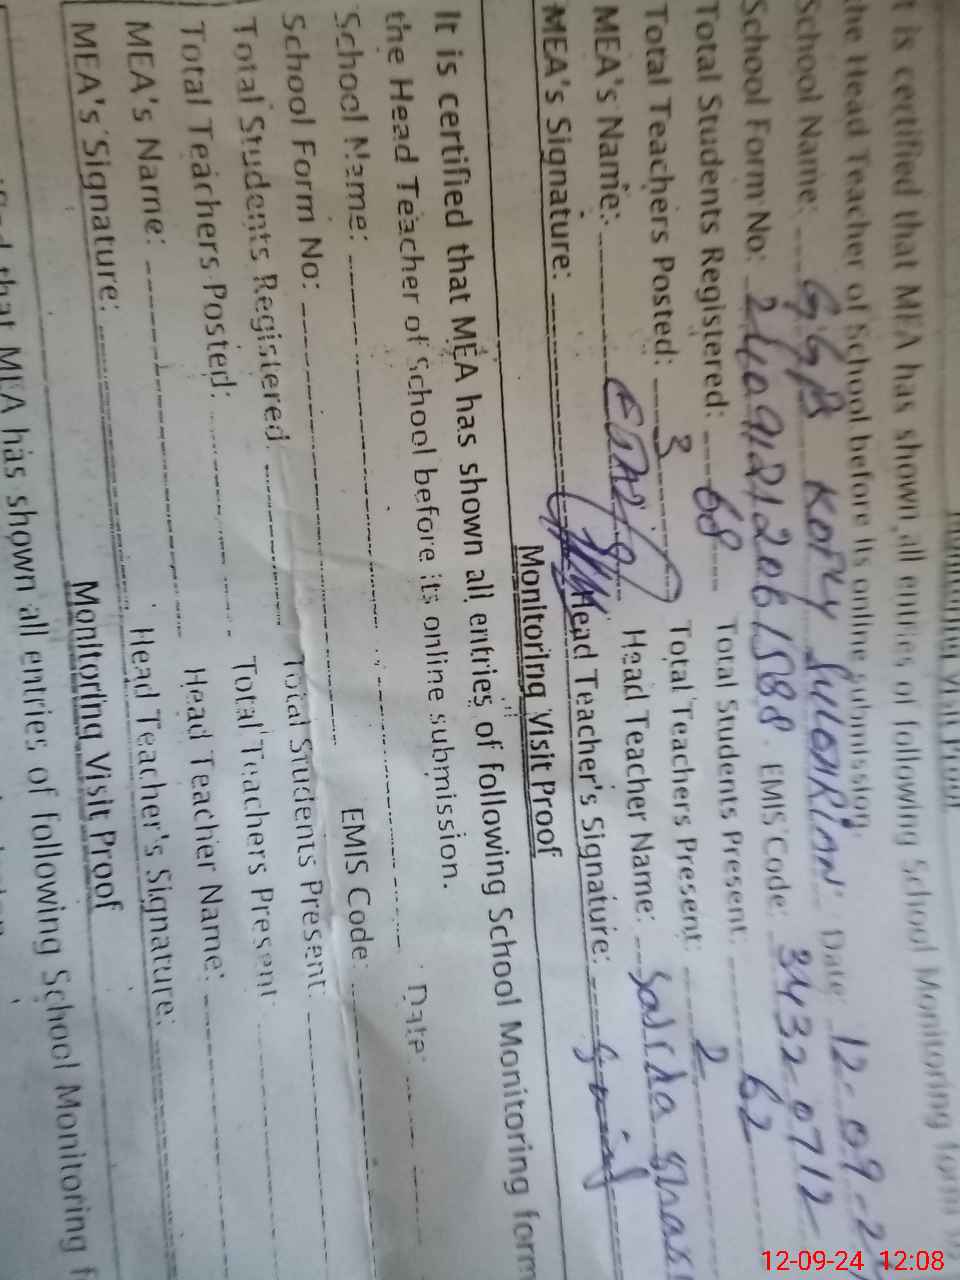 Monitoring Visit Proof
t is certified that MEA has shown all entries of following School Monitoring form
the Head Teacher of School before its online submission.
School Name: GGPS Date: 12-09-2
School Form No: EMIS Code: 34320712
Total Students Registered: 68 Total Students Present: 62
Total Teachers Posted: 3 Total Teachers Present: 2
MEA's Name: Head Teacher Name:
MEA's Signature: Head Teacher's Signature:
Monitoring Visit Proof
It is certified that MEA has shown all entries of following School Monitoring form
the Head Teacher of School before its online submission.
School Name: Date:
School Form No: EMIS Code:
Total Students Registered: Total Students Present:
Total Teachers Posted: Total Teachers Present:
MEA's Name: Head Teacher Name:
MEA's Signature: Head Teacher's Signature:
Monitoring Visit Proof
that MEA has shown all entries of following School Monitoring f
12-09-24 12:08